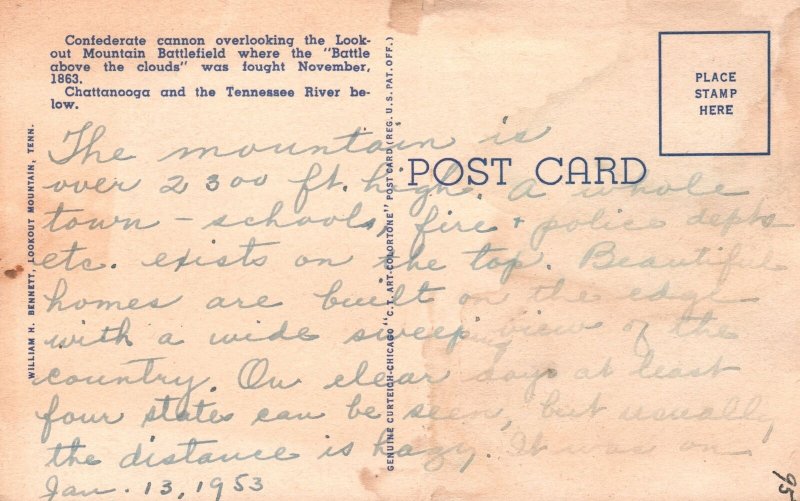 Confederate cannon overlooking the Look-
out Mountain Battlefield where the "Battle
above the clouds" was fought November,
1863.
Chattanooga and the Tennessee River be-
low.
WILLIAM H. BENNETT, LOOKOUT MOUNTAIN, TENN.
GENUINE CURTEICH-CHICAGO "C.T. ART-COLORTONE" POST CARD (REG. U.S. PAT. OFF.)
POST CARD
PLACE
STAMP
HERE
The mountain is
over 2300 ft. high. A whole
town – schools, fire + police depts
etc. exists on the top. Beautiful
homes are built on the edge
with a wide sweeping view of the
country. On clear days at least
four states can be seen, but usually
the distance is hazy. It was on
Jan. 13, 1953
95